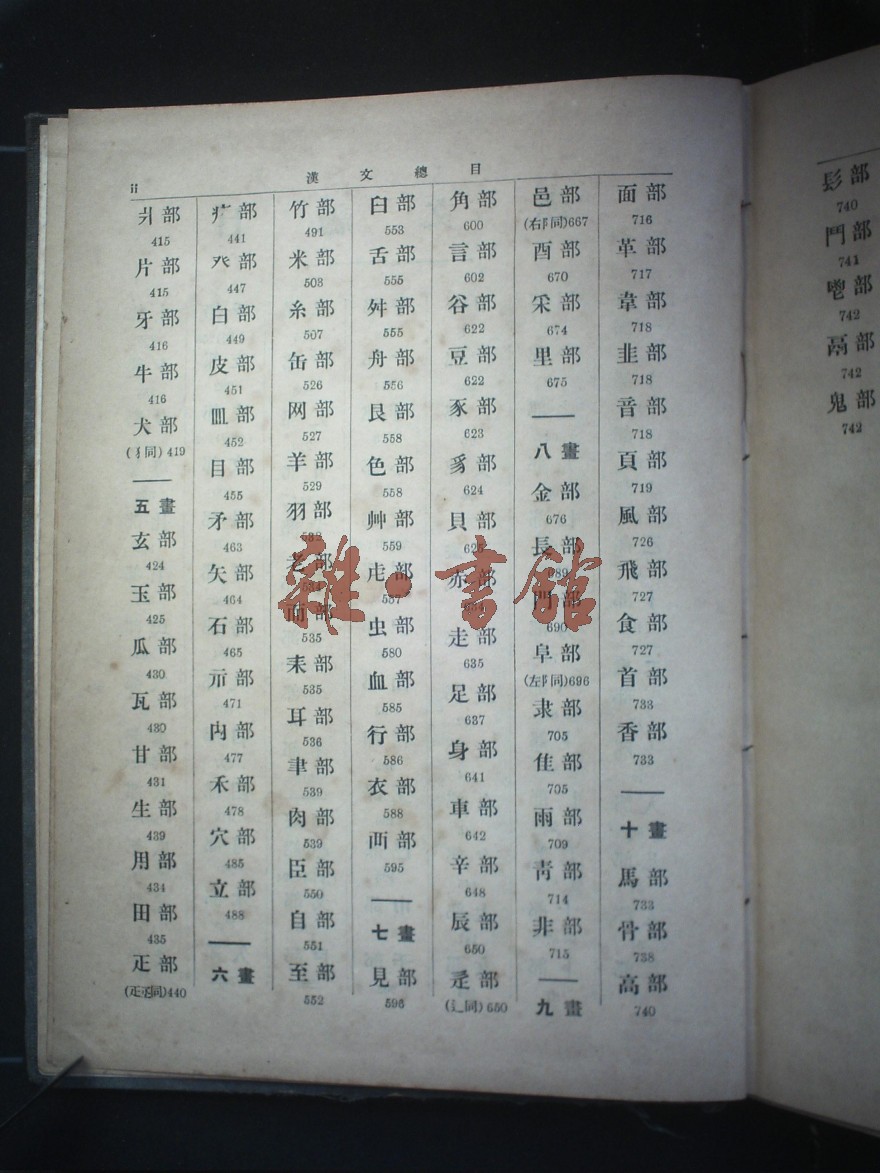 ii
漢文總目
爿部
415
片部
415
牙部
416
牛部
416
犬部
(犭同) 419
五畫
玄部
424
玉部
425
瓜部
430
瓦部
430
甘部
431
生部
439
用部
434
田部
435
疋部
440
疒部
441
癶部
447
白部
449
皮部
451
皿部
452
目部
455
矛部
463
矢部
464
石部
465
示部
471
禸部
477
禾部
478
穴部
485
立部
488
六畫
竹部
491
米部
503
糸部
507
缶部
526
网部
527
羊部
529
羽部
532
老部
534
而部
535
耒部
535
耳部
536
聿部
539
肉部
539
臣部
550
自部
551
至部
552
臼部
553
舌部
555
舛部
555
舟部
556
艮部
558
色部
558
艸部
559
虍部
虫部
580
血部
585
行部
586
衣部
588
襾部
595
七畫
見部
596
角部
600
言部
602
谷部
622
豆部
622
豕部
623
豸部
624
貝部
625
赤部
634
走部
635
足部
637
身部
641
車部
642
辛部
648
辰部
650
辵部
(辶同) 650
邑部
(右阝同)667
酉部
670
釆部
674
里部
675
八畫
金部
676
長部
689
門部
690
阜部
(左阝同)696
隶部
705
隹部
705
雨部
709
靑部
714
非部
715
九畫
面部
716
革部
717
韋部
718
韭部
718
音部
718
頁部
719
風部
726
飛部
727
食部
727
首部
733
香部
733
十畫
馬部
733
骨部
738
高部
740
髟部
740
鬥部
741
鬯部
742
鬲部
742
鬼部
742
雜·書館